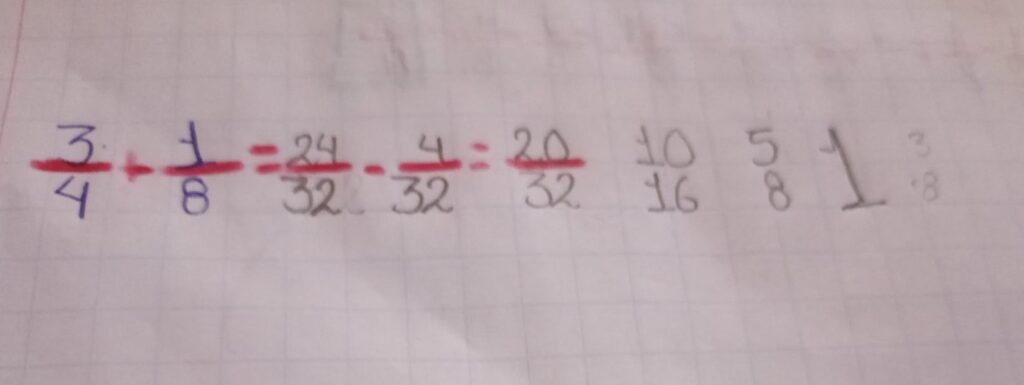 3/4 + 1/8 = 24/32 - 4/32 = 20/32 10/16 5/8 1 3/8